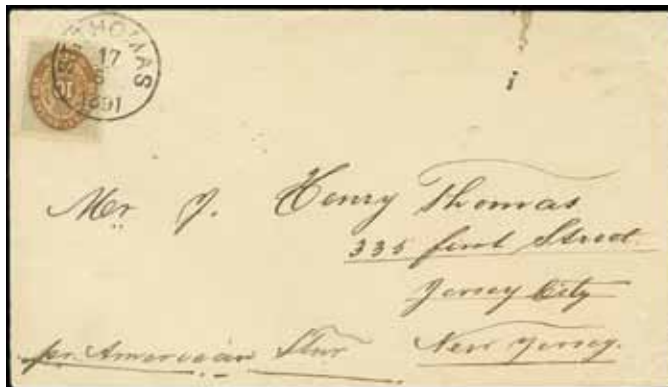 ST. THOMAS
17
6
1891
10
i
Mr J. Henry Thomas
335 first Street.
Jersey City
New Jersey.
per American Stmr